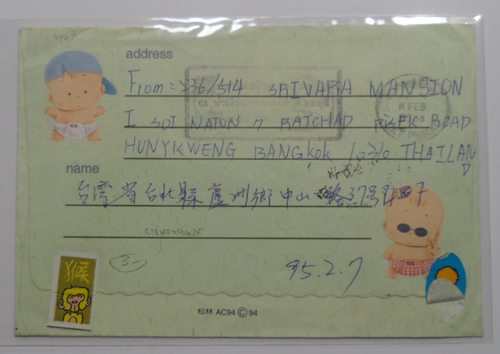 address
From: 236/514 SRIVARA MANSION
I SOI NATON 7 RATCHAD ROAD
HUNYKWENG BANGKOK 10310 THAILAND
name
台湾省台北縣蘆洲鄉中山
FEB
95.2.7
猴
松林 AC94 © 94